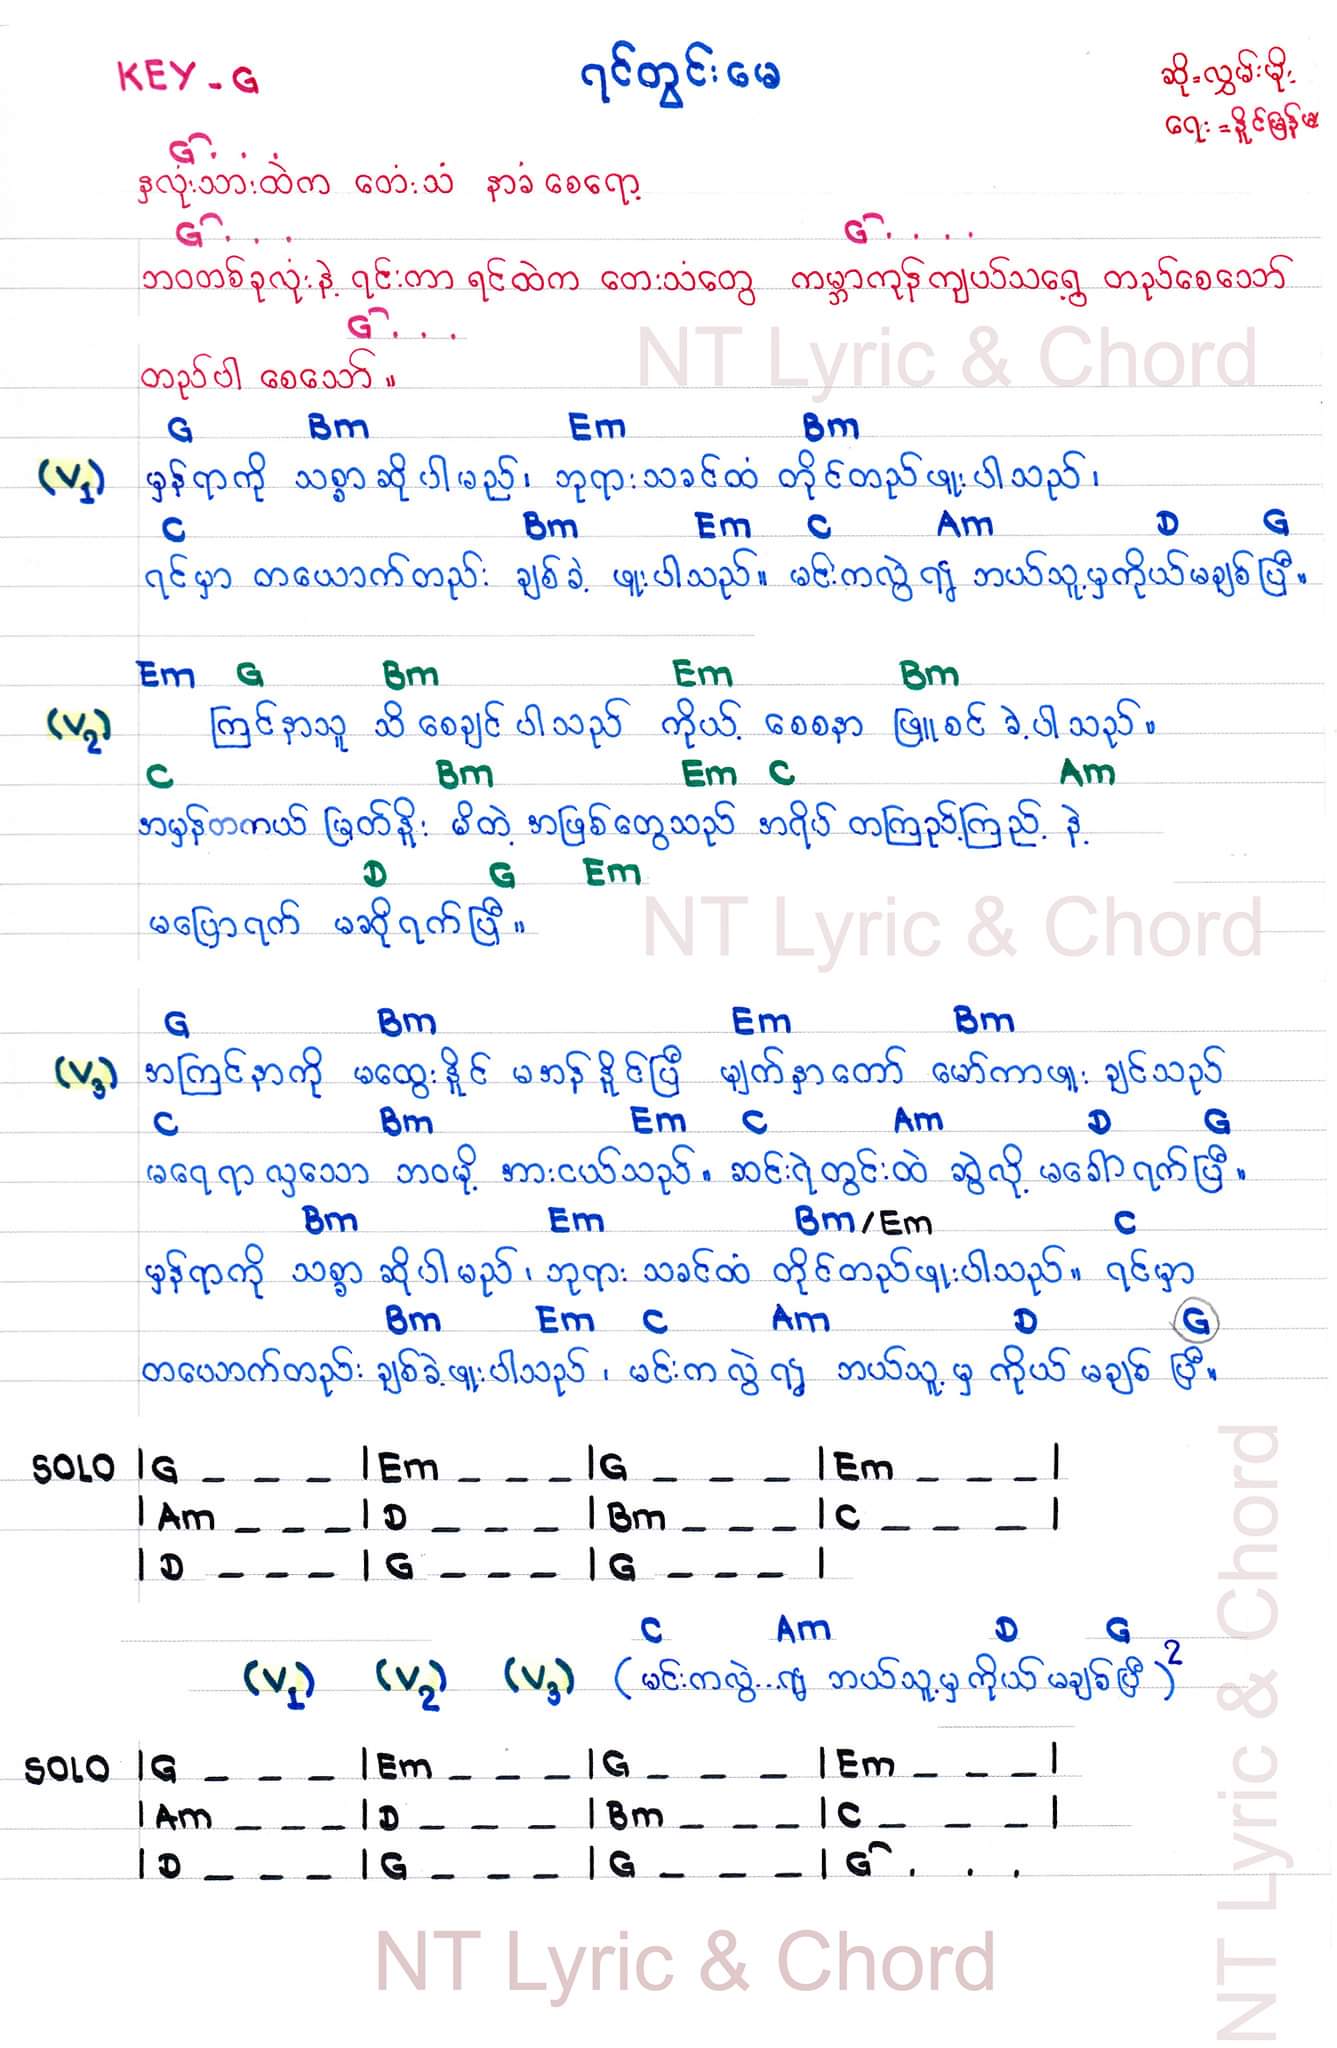 KEY - G
ရင်တွင်းမေ
ဆို=လွှမ်းမိုး
ရေး=နိူင်မြန်မာ
G . . .
နှလုံးသားထဲက တေးသံ နာခံစေရော့
G . . . G . . . .
ဘဝတစ်ခုလုံးနဲ့ ရင်းကာ ရင်ထဲက တေးသံတွေ ကမ္ဘာကုန်ကျယ်သရွေ့ တည်စေသော်
G . . .
တည်ပါ စေသော်။
NT Lyric & Chord
G Bm Em Bm
(V1) မှန်ရာကို သစ္စာဆိုပါမည်၊ ဘုရားသခင်ထံ တိုင်တည်ဖူးပါသည်၊
C Bm Em C Am D G
ရင်မှာ တယောက်တည်း ချစ်ခဲ့ ဖူးပါသည်။ မင်းကလွဲ၍ ဘယ်သူ့မှကိုယ်မချစ်ပြီ။
Em G Bm Em Bm
(V2) ကြင်နာသူ သိစေချင်ပါသည် ကိုယ့် စေစနာ ဖြူစင်ခဲ့ပါသည်။
C Bm Em C Am
အမှန်တကယ် မြတ်နိူး မိတဲ့ အဖြစ်တွေသည် အရိပ် တကြည့်ကြည့် နဲ့
D G Em
မပြောရက် မဆိုရက်ပြီ။
NT Lyric & Chord
G Bm Em Bm
(V3) အကြင်နာကို မထွေးနိူင် မအန်နိူင်ပြီ မျက်နှာတော် မော်ကာဖူး ချင်သည်
C Bm Em C Am D G
မရေရာလှသော ဘဝမို့ အားငယ်သည်။ ဆင်းရဲတွင်းထဲ ဆွဲလို့ မခေါ်ရက်ပြီ။
Bm Em Bm/Em C
မှန်ရာကို သစ္စာဆိုပါမည်၊ ဘုရား သခင်ထံ တိုင်တည်ဖူးပါသည်။ ရင်မှာ
Bm Em C Am D G
တယောက်တည်း ချစ်ခဲ့ဖူးပါသည်၊ မင်းကလွဲ၍ ဘယ်သူ့မှ ကိုယ်မချစ် ပြီ။
SOLO |G _ _ _ |Em _ _ _ |G _ _ _ |Em _ _ _ |
|Am _ _ _ |D _ _ _ |Bm _ _ _ |C _ _ _ |
|D _ _ _ |G _ _ _ |G _ _ _ |
C Am D G
(V1) (V2) (V3) (မင်းကလွဲ...၍ ဘယ်သူ့မှကိုယ်မချစ်ပြီ)2
SOLO |G _ _ _ |Em _ _ _ |G _ _ _ |Em _ _ _ |
|Am _ _ _ |D _ _ _ |Bm _ _ _ |C _ _ _ |
|D _ _ _ |G _ _ _ |G _ _ _ |G . . .
NT Lyric & Chord
NT Lyric & Chord